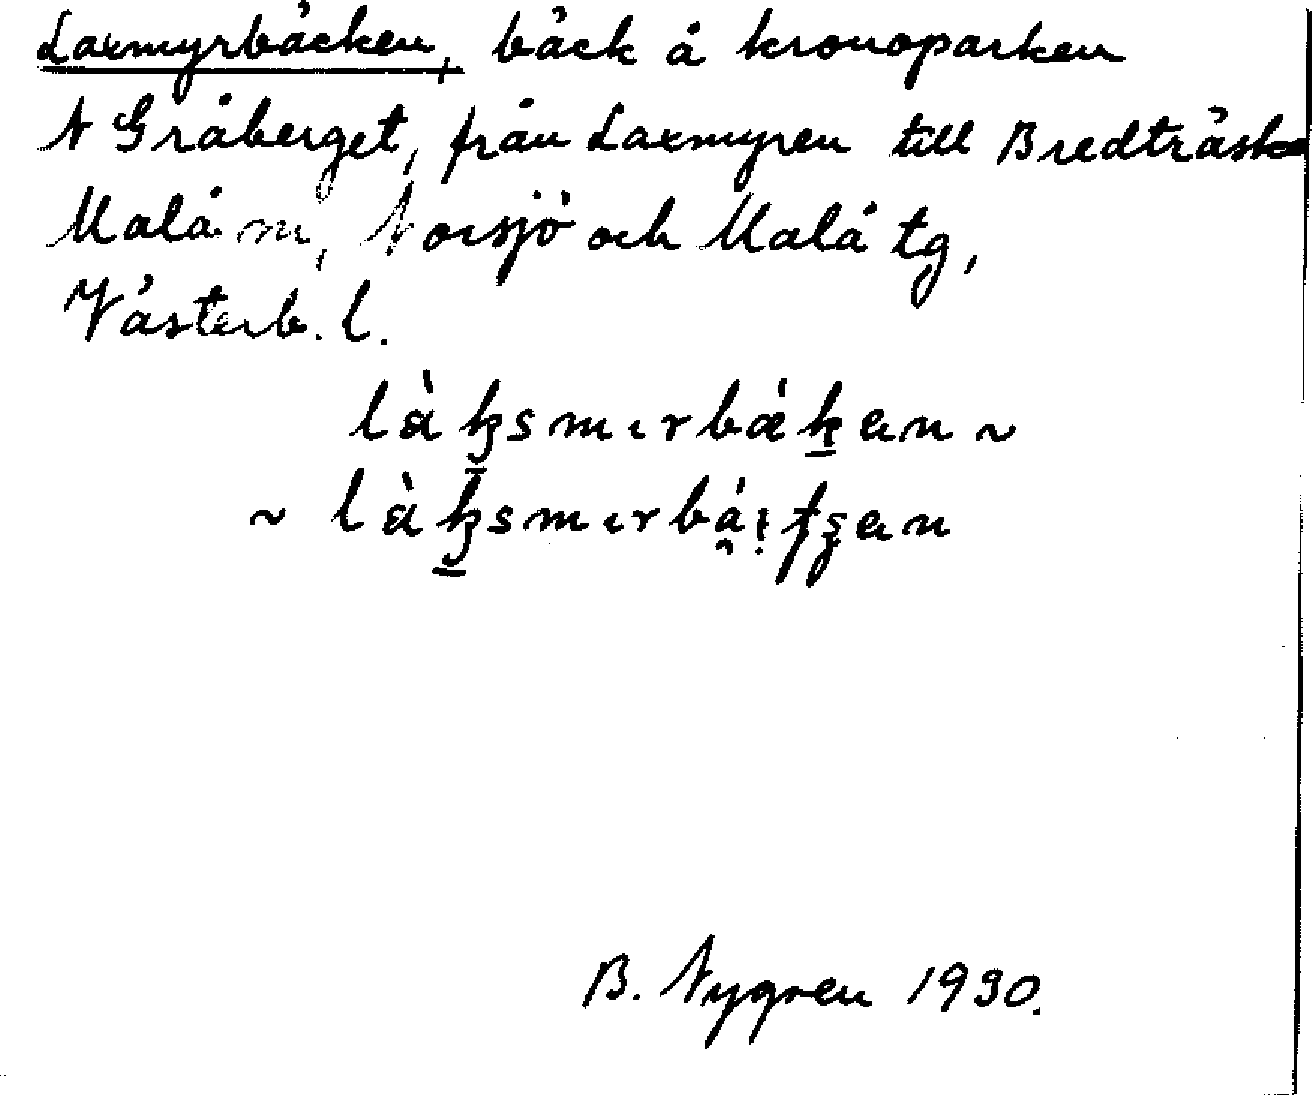 Laxmyrbäcken, bäck å kronoparken
N Gråberget, från Laxmyren till Bredträsk
Malå m, Norsjö och Malå tg,
Västerb. l.
làk̠smɩrbák̠en ~
~ làk̠smɩrbá̯ı̣tʂen
B. Nygren 1930.